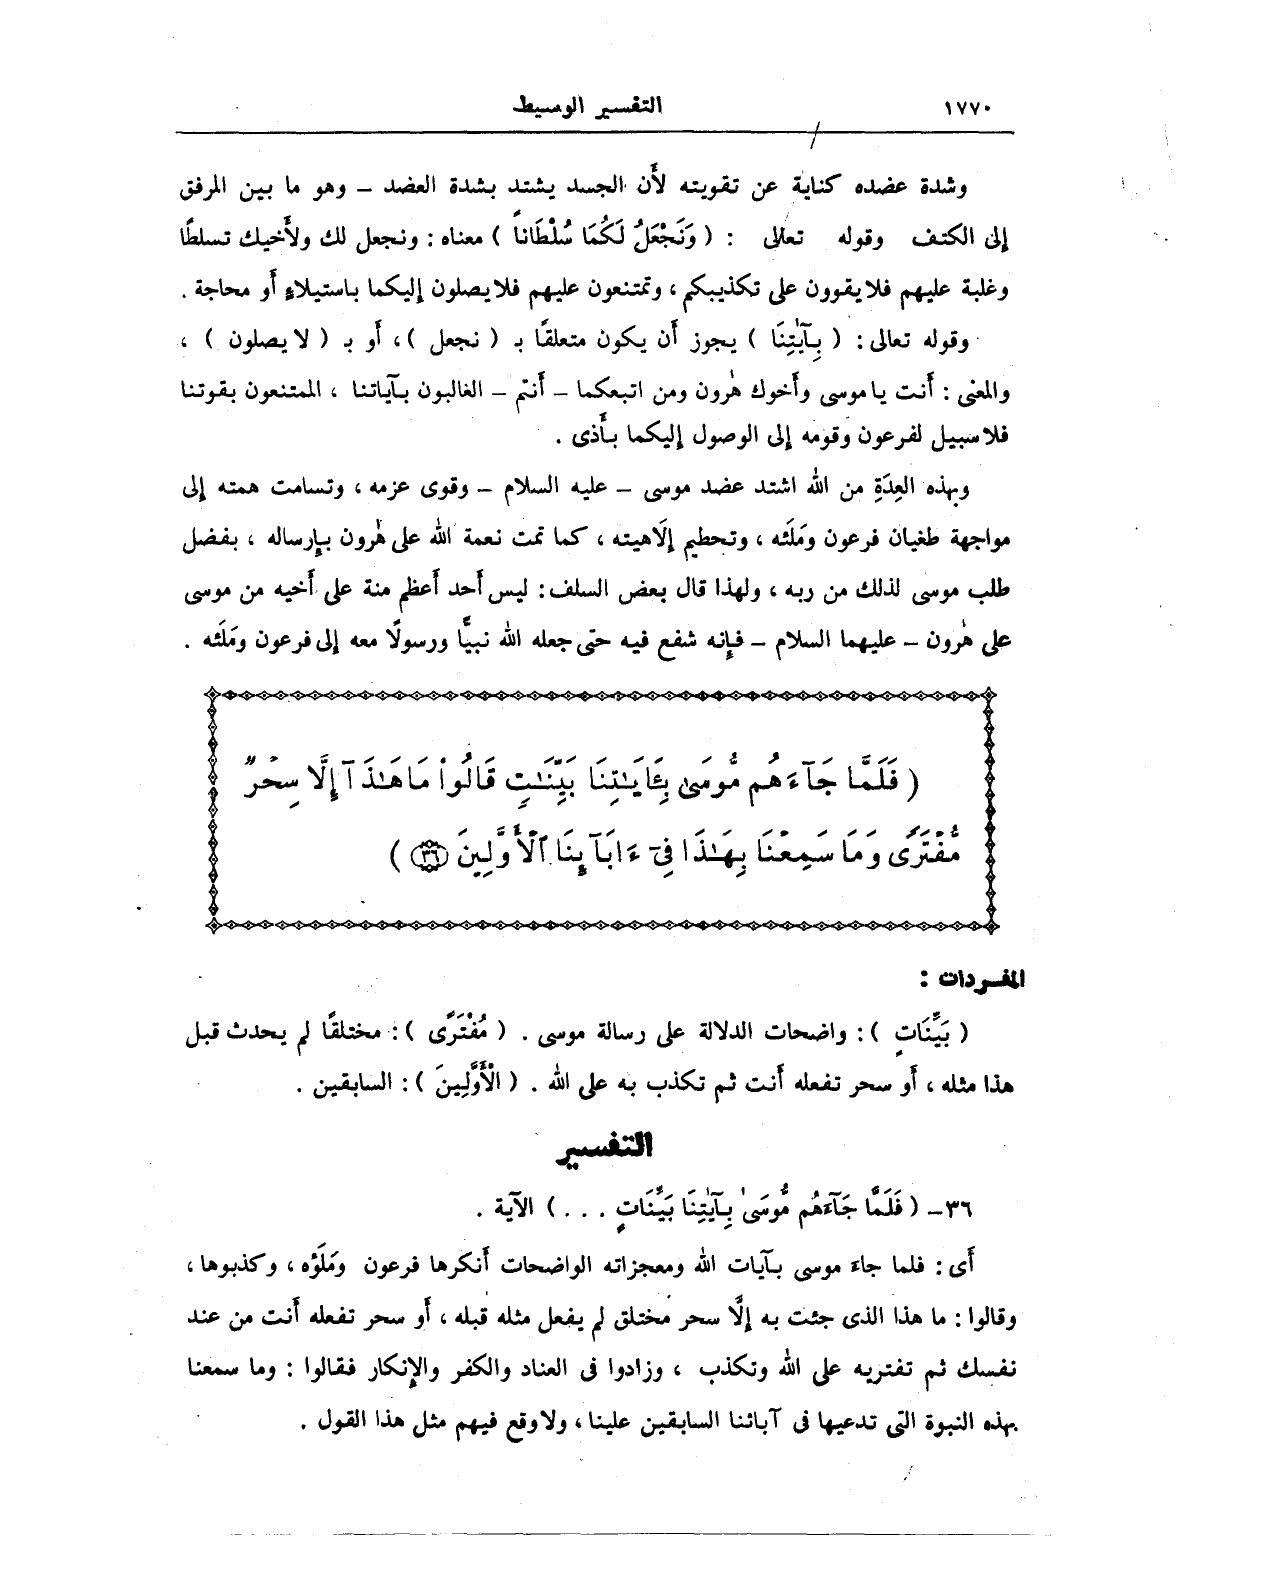 ١٧٧٠ التفسير الوسيط
وشدة عضده كناية عن تقويته لأَن الجسد يشتد بشدة العضد – وهو ما بين المرفق
إلى الكتف وقوله تعالى : ( وَنَجْعَلُ لَكُمَا سُلْطَاناً ) معناه : ونجعل لك ولأَخيك تسلطًا
وغلبة عليهم فلا يقوون على تكذيبكم ، وتمتنعون عليهم فلا يصلون إليكما باستيلاءٍ أَو محاجة .
وقوله تعالى : ( بِآيٰتِنَا ) يجوز أَن يكون متعلقًا بـ ( نجعل ) ، أَو بـ ( لا يصلون ) ،
والمعنى : أَنت يا موسى وأَخوك هٰرون ومن اتبعكما – أَنتم – الغالبون بآياتنا ، الممتنعون بقوتنا
فلا سبيل لفرعون وقومه إلى الوصول إليكما بأَذى .
وبهذه العِدَةِ من الله اشتد عضد موسى – عليه السلام – وقوى عزمه ، وتسامت همته إلى
مواجهة طغيان فرعون ومَلَئه ، وتحطيم إلَاهيته ، كما تمت نعمة الله على هٰرون بإرساله ، بفضل
طلب موسى لذلك من ربه ، ولهذا قال بعض السلف : ليس أَحد أَعظم منة على أَخيه من موسى
على هٰرون – عليهما السلام – فإنه شفع فيه حتى جعله الله نبيًّا ورسولًا معه إلى فرعون ومَلَئه .
( فَلَمَّا جَآءَهُم مُّوسَىٰ بِـَٔايَـٰتِنَا بَيِّنَـٰتٍ قَالُوا۟ مَا هَـٰذَآ إِلَّا سِحْرٌ
مُّفْتَرًى وَمَا سَمِعْنَا بِهَـٰذَا فِىٓ ءَابَآئِنَا ٱلْأَوَّلِينَ ٣٦ )
المفردات :
( بَيِّنَاتٍ ) : واضحات الدلالة على رسالة موسى . ( مُفْتَرًى ) : مختلقًا لم يحدث قبل
هذا مثله ، أَو سحر تفعله أَنت ثم تكذب به على الله . ( الْأَوَّلِينَ ) : السابقين .
التفسير
٣٦– ( فَلَمَّا جَآءَهُم مُّوسَىٰ بِآيٰتِنَا بَيِّنَاتٍ . . . ) الآية .
أَى : فلما جاءَ موسى بآيات الله ومعجزاته الواضحات أَنكرها فرعون ومَلَؤه ، وكذبوها ،
وقالوا : ما هذا الذى جئت به إلَّا سحر مختلق لم يفعل مثله قبله ، أَو سحر تفعله أَنت من عند
نفسك ثم تفتريه على الله وتكذب ، وزادوا فى العناد والكفر والإنكار فقالوا : وما سمعنا
بهذه النبوة التى تدعيها فى آبائنا السابقين علينا ، ولا وقع فيهم مثل هذا القول .